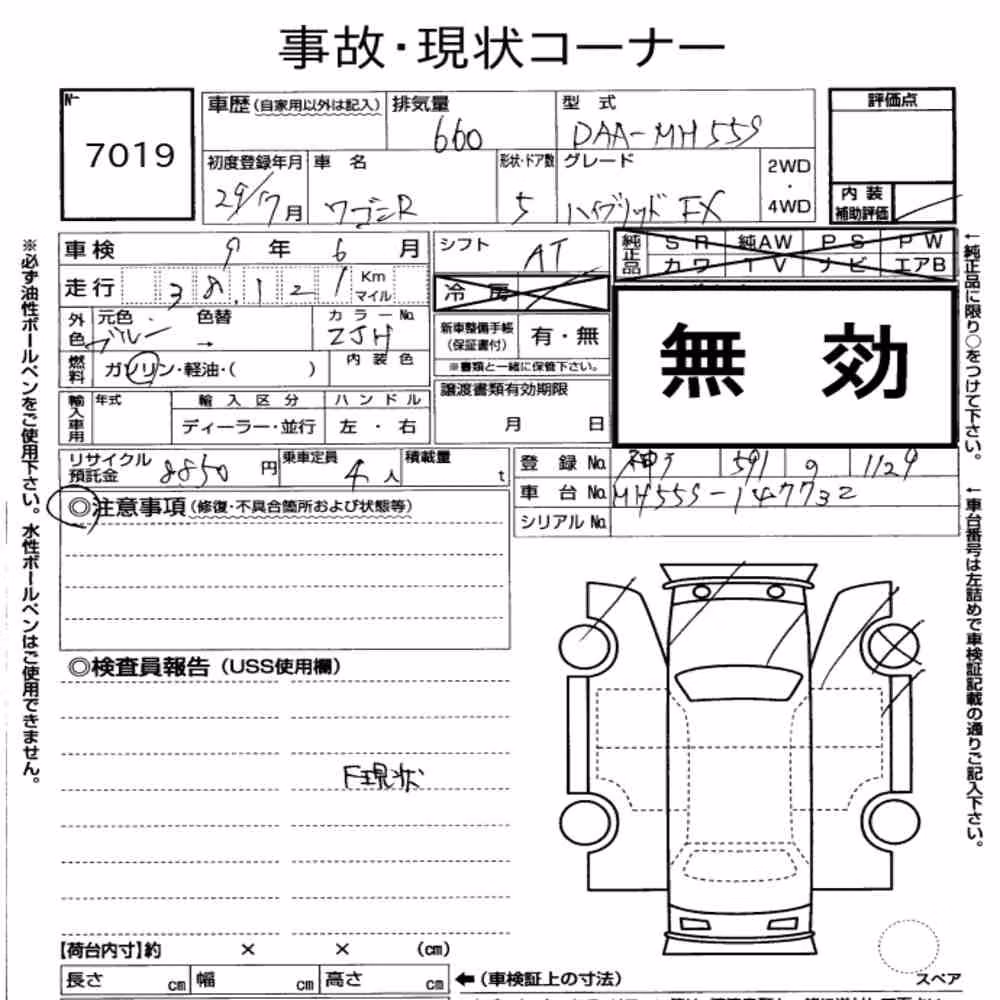 事故・現状コーナー
No. 7019
車歴 (自家用以外は記入) 排気量 660 型式 DAA-MH55S
評価点
初度登録年月 29/7月 車名 ワゴンR 形状・ドア数 5 グレード ハイブリッド FX 2WD・4WD
内装補助評価
車検 9年 6月 シフト AT
純正品 SR 純AW PS PW
カワ TV ナビ エアB
走行 38,121 Km マイル 冷房
外色 元色 ブルー 色替 → カラーNo. ZJH
新車整備手帳 (保証書付) 有・無
※書類と一緒に保管下さい。
無効
燃料 ガソリン・軽油・( ) 内装色
輸入車用 年式 輸入区分 ハンドル
ディーラー・並行 左・右
譲渡書類有効期限
月 日
リサイクル預託金 8850円 乗車定員 4人 積載量 t
登録No. 591 1129
車台No. MH55S-147732
シリアルNo.
◎注意事項 (修復・不具合箇所および状態等)
◎検査員報告 (USS使用欄)
F現状
【荷台内寸】約 × × (cm)
長さ cm 幅 cm 高さ cm ← (車検証上の寸法)
スペア
※必ず油性ボールペンをご使用下さい。水性ボールペンはご使用できません。
←純正品に限り○をつけて下さい。
←車台番号は左詰めで車検証記載の通りご記入下さい。